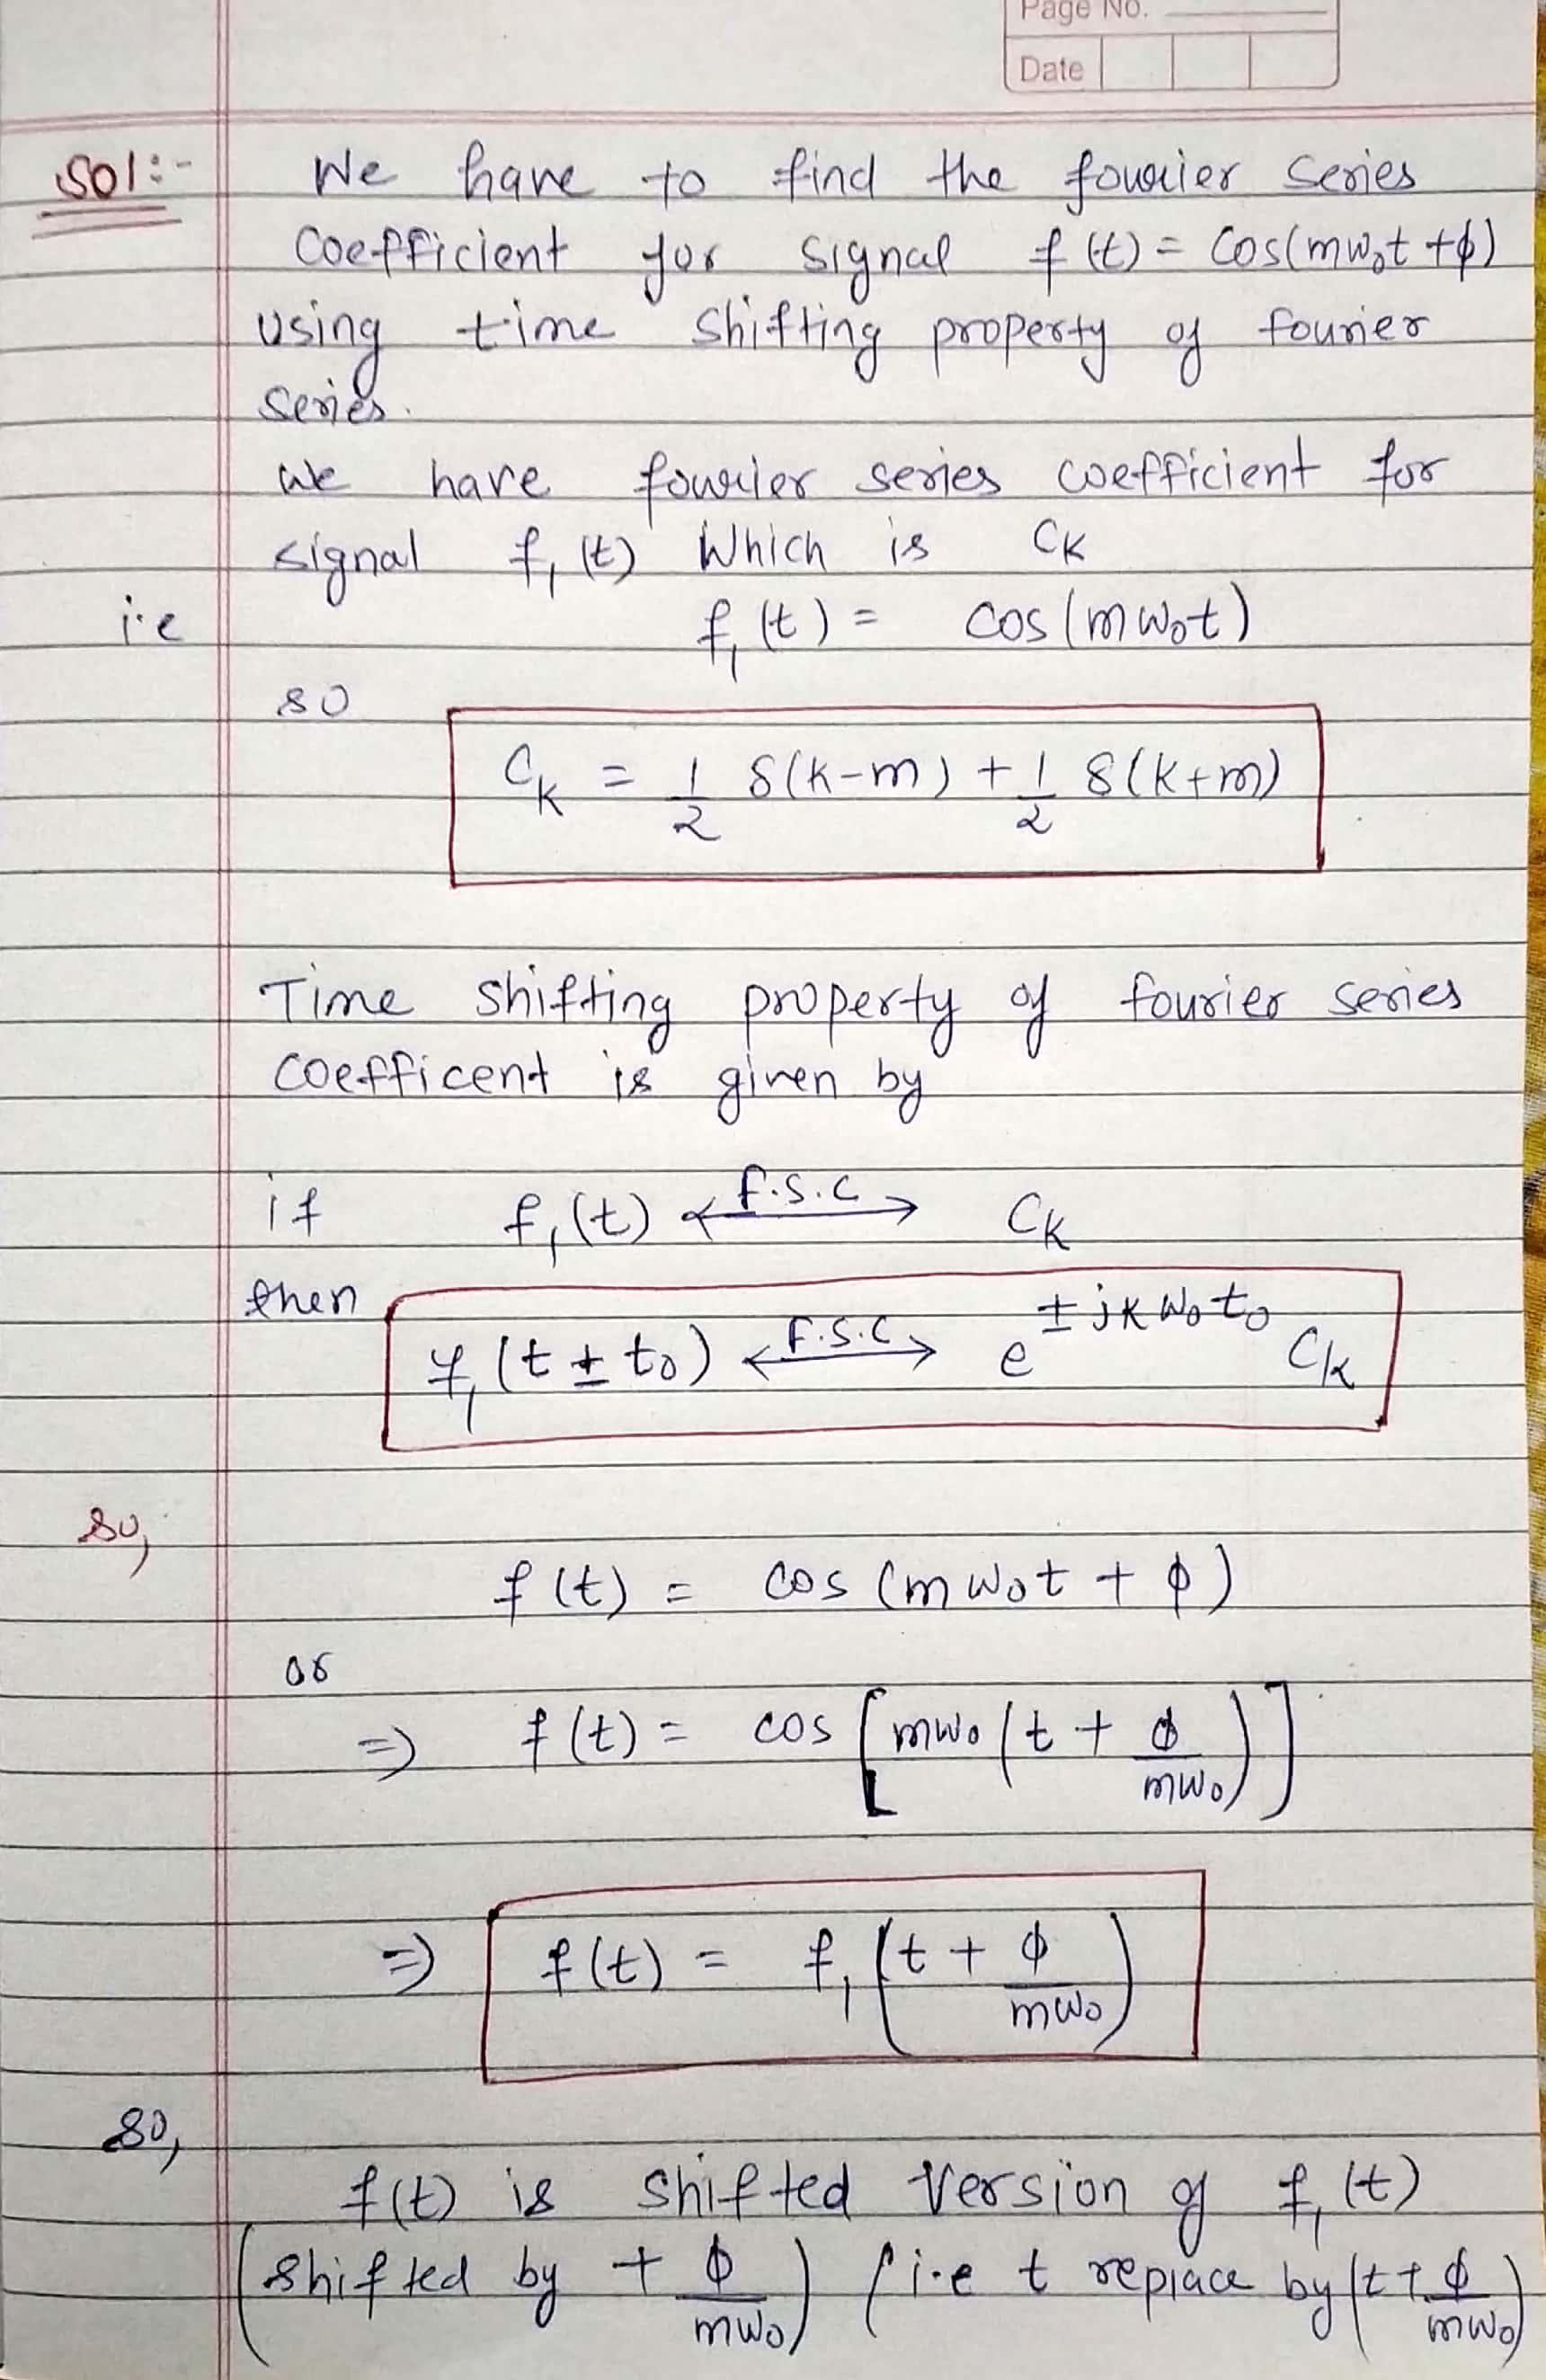 Page No.
Date
Sol:-
We have to find the fourier series
Coefficient for signal f(t) = Cos(mω₀t + ϕ)
using time shifting property of fourier
series.
we have fourier series coefficient for
signal f₁(t) Which is Cₖ
i.e f₁(t) = cos(mω₀t)
so
Cₖ = 1/2 δ(k-m) + 1/2 δ(k+m)
Time shifting property of fourier series
coefficent is given by
if f₁(t) ←F.S.C→ Cₖ
then f₁(t ± t₀) ←F.S.C→ e^(±jkω₀t₀) Cₖ
so,
f(t) = cos(mω₀t + ϕ)
or
⇒ f(t) = cos[mω₀(t + ϕ/mω₀)]
⇒ f(t) = f₁(t + ϕ/mω₀)
so,
f(t) is shifted version of f₁(t)
(shifted by + ϕ/mω₀) (i.e t replace by (t + ϕ/mω₀)